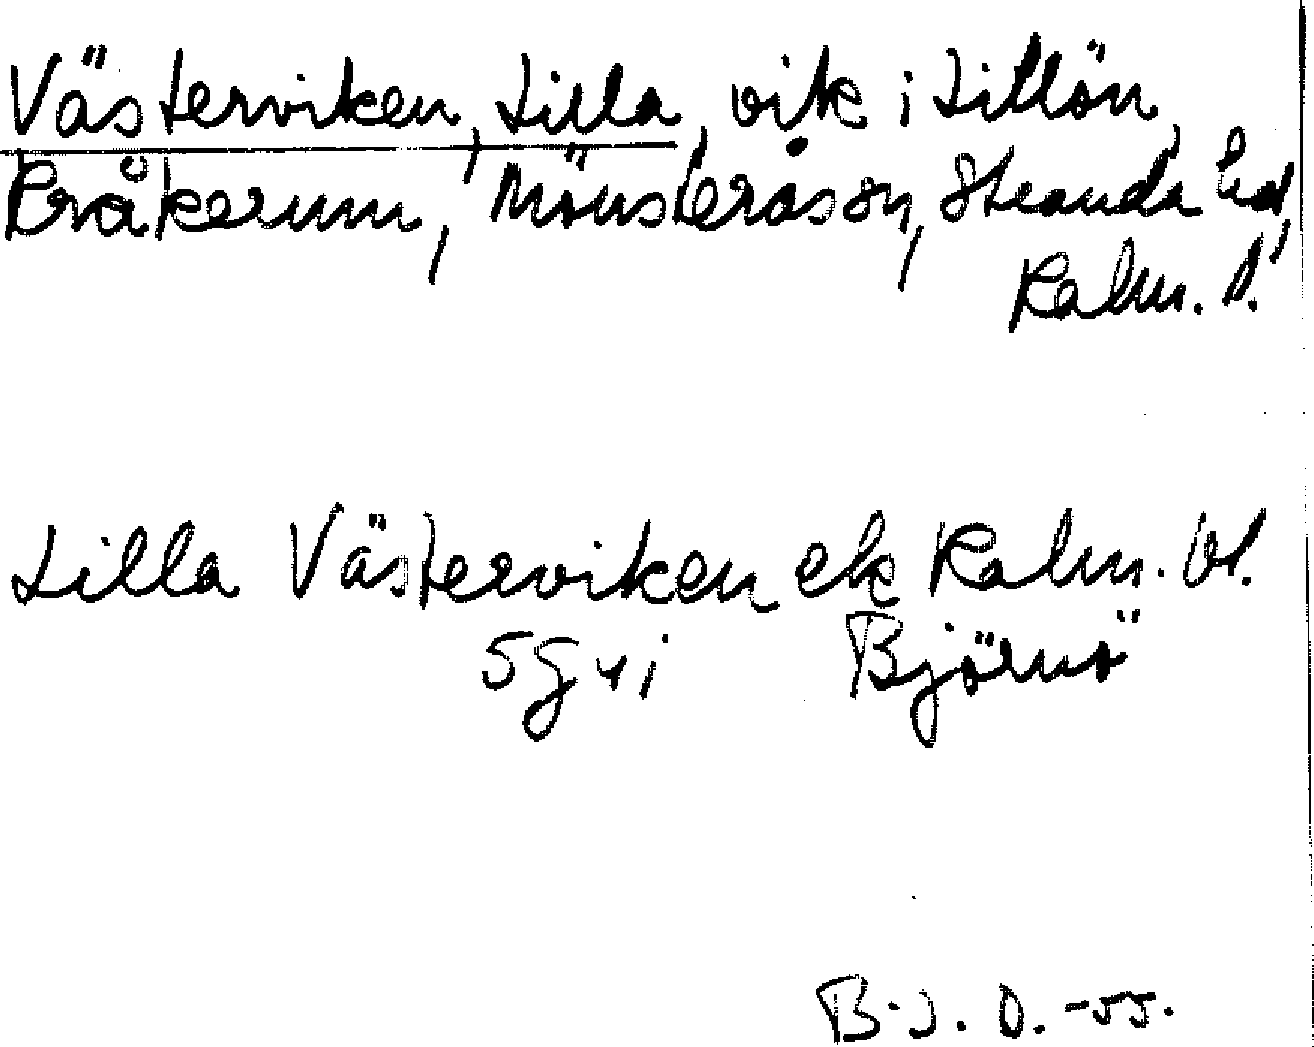 Västerviken, Lilla, vik i Lillön,
Kråkerum, Mönsterås sn, Stranda hd,
Kalm. l.
Lilla Västerviken ek Kalm. bl.
5G4i Björnö
B.J. O. -55.